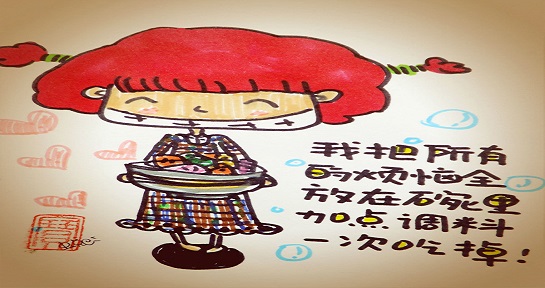 我把所有
的烦恼全
放在碗里
加点调料
一次吃掉！